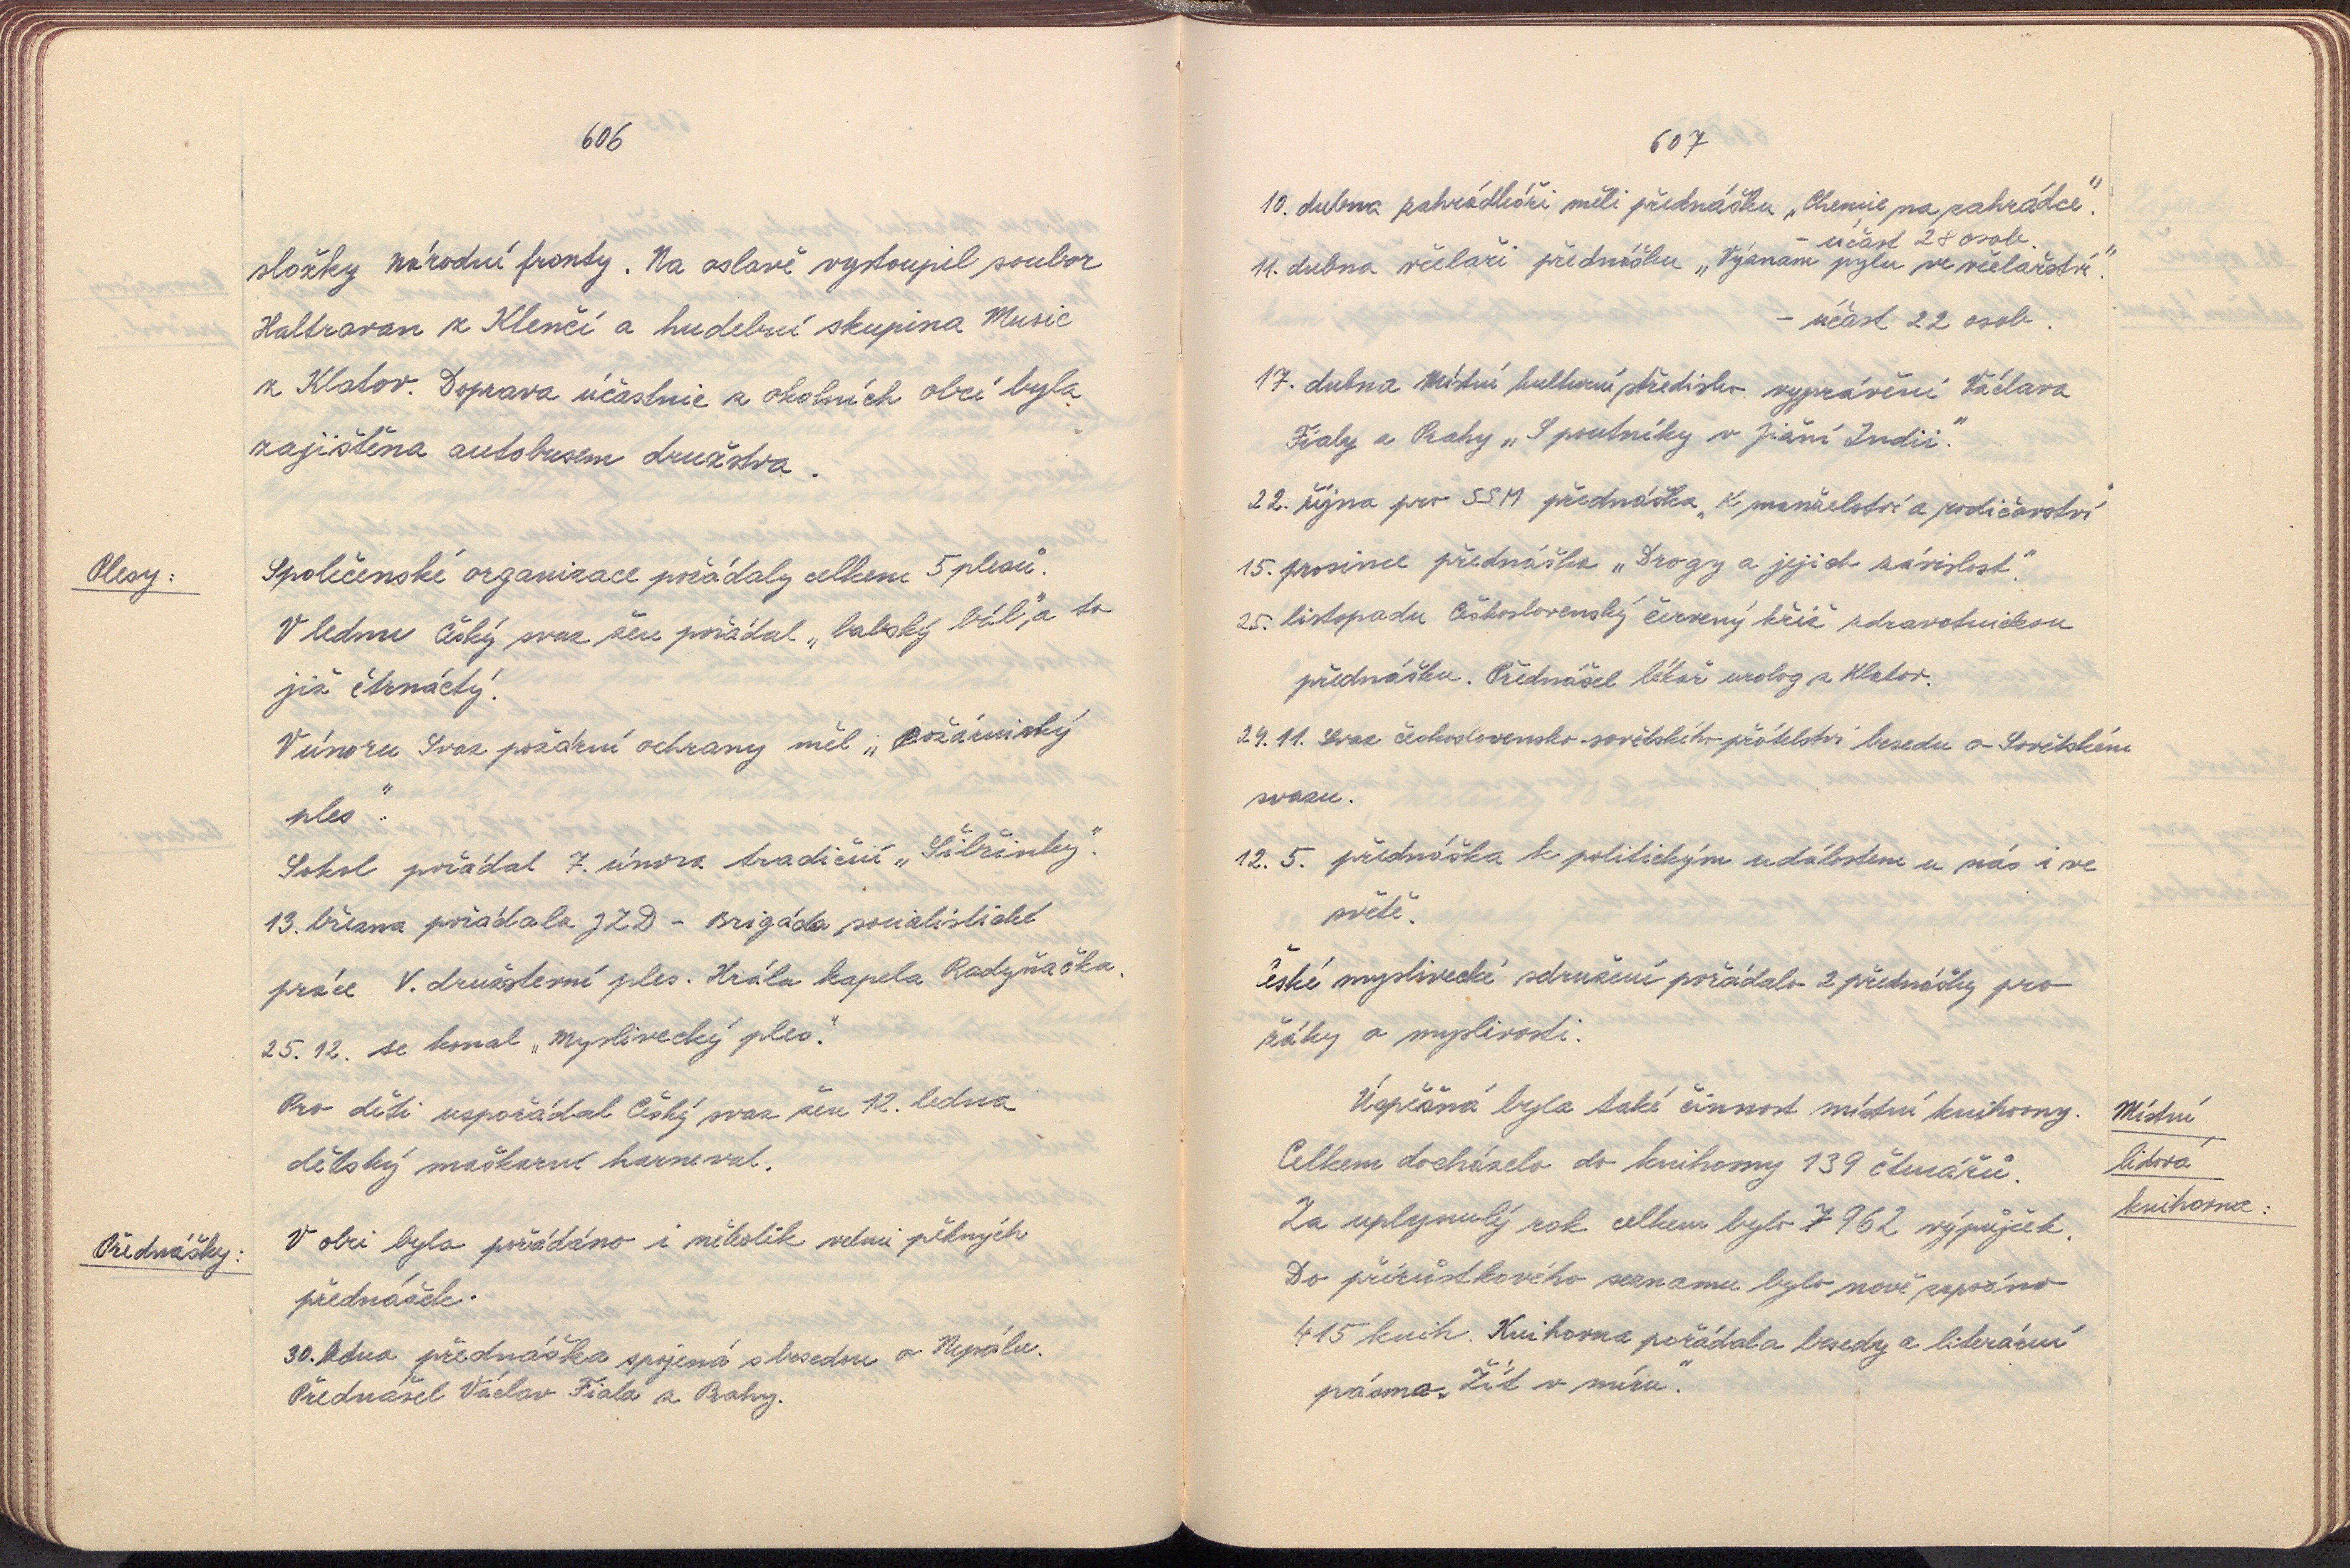 606
složky národní fronty. Na oslavě vystoupil soubor
Haltravan z Klenčí a hudební skupina Music
z Klatov. Doprava účastnic z okolních obcí byla
zajištěna autobusem družstva.
Plesy:
Společenské organizace pořádaly celkem 5 plesů.
V lednu Český svaz žen pořádal „babský bál", a to
již čtrnáctý.
V únoru Svaz požární ochrany měl „Požárnický
ples".
Sokol pořádal 7. února tradiční „Šibřinky".
13. března pořádala JZD - Brigáda socialistické
práce V. družstevní ples. Hrála kapela Radyňačka.
25. 12. se konal „Myslivecký ples".
Pro děti uspořádal Český svaz žen 12. ledna
dětský maškarní karneval.
Přednášky:
V obci bylo pořádáno i několik velmi pěkných
přednášek.
30. ledna přednáška spojená s besedou o Nepálu.
Přednášel Václav Fiala z Prahy.
607
10. dubna zahrádkáři měli přednášku „Chemie na zahrádce".
- účast 28 osob.
11. dubna včelaři přednášku „Význam pylu ve včelařství".
- účast 22 osob.
17. dubna Místní kulturní středisko vyprávění Václava
Fialy z Prahy „S poutníky v Jižní Indii".
22. října pro SSM přednáška „K manželství a rodičovství"
15. prosince přednáška „Drogy a jejich závislost".
25. listopadu Československý červený kříž zdravotnickou
přednášku. Přednášel lékař urolog z Klatov.
29. 11. Svaz československo-sovětského přátelství besedu o Sovětském
svazu.
12. 5. přednáška k politickým událostem u nás i ve
světě.
České myslivecké sdružení pořádalo 2 přednášky pro
žáky o myslivosti.
Úspěšná byla také činnost místní knihovny.
Místní
Celkem docházelo do knihovny 139 čtenářů.
lidová
Za uplynulý rok celkem bylo 7 962 výpůjček.
knihovna:
Do přírůstkového seznamu bylo nově zapsáno
415 knih. Knihovna pořádala besedy a literární
pásmo „Žít v míru".